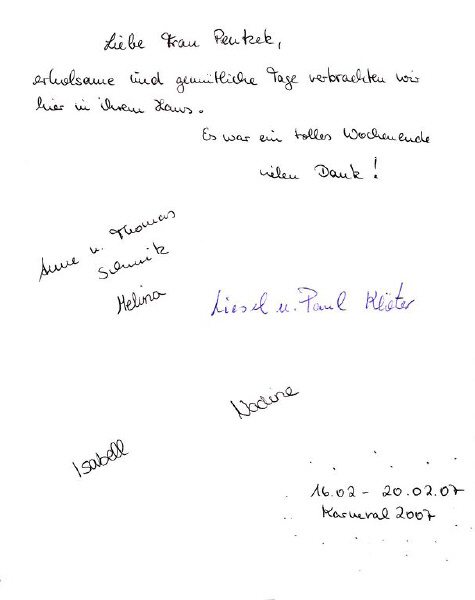 Liebe Frau Pentzek,
erholsame und gemütliche Tage verbrachten wir
hier in ihrem Haus.
Es war ein tolles Wochenende
vielen Dank!
Anne u. Thomas
Schmitz
Melina
Liesel u. Paul Klöter
Nadine
Isabell
16.02 - 20.02.07
Karneval 2007